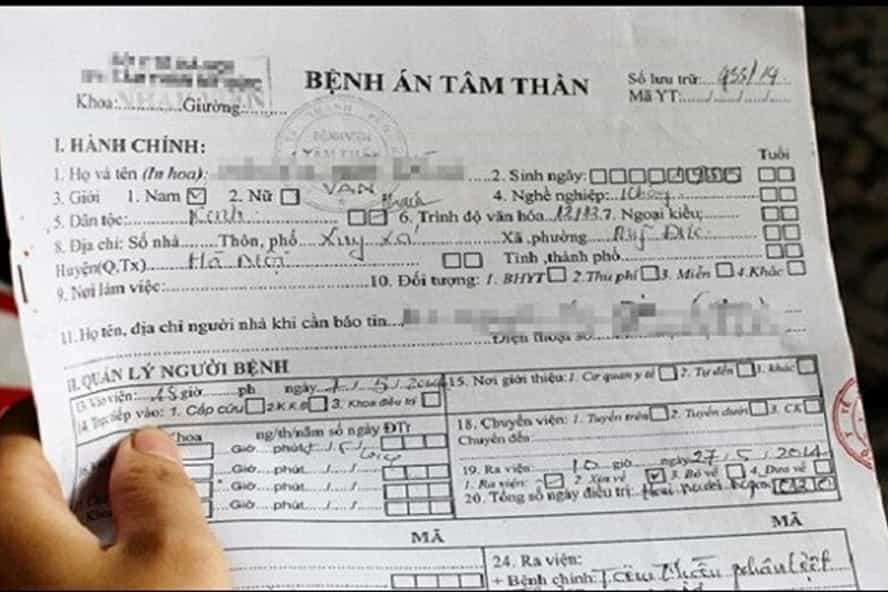 BỆNH ÁN TÂM THẦN
Số lưu trữ:...955/14
Mã YT:....../....../....../......
Khoa:............Giường...........
BỆNH VIỆN
TÂM THẦN
I. HÀNH CHÍNH:
1. Họ và tên (In hoa):
VAN
2. Sinh ngày:
Tuổi
3. Giới 1. Nam 2. Nữ
4. Nghề nghiệp:
5. Dân tộc: Kinh
6. Trình độ văn hóa 12/12 7. Ngoại kiều:
8. Địa chỉ: Số nhà........Thôn, phố Xuy Xá Xã ,phường Mỹ Đức
Huyện(Q,Tx) Hà Nội Tỉnh ,thành phố
9. Nơi làm việc: 10. Đối tượng: 1. BHYT 2.Thu phí 3. Miễn 4.Khác
11. Họ tên, địa chỉ người nhà khi cần báo tin
Điện thoại số
II. QUẢN LÝ NGƯỜI BỆNH
13. Vào viện: 15 giờ ph ngày 7/5/2014
15. Nơi giới thiệu: 1. Cơ quan y tế 2. Tự đến 3. Khác
14. Trực tiếp vào: 1. Cấp cứu 2.K.K.B 3. Khoa điều trị
Khoa ng/th/năm số ngày ĐTr
18. Chuyển viện: 1. Tuyến trên 2. Tuyến dưới 3. CK
Giờ ...phút
Chuyển đến:
Giờ ...phút...../...../......
19. Ra viện: 10 giờ ngày 27/5/2014
Giờ ...phút...../...../......
1. Ra viện: 2. Xin về 3. Bỏ về 4. Đưa về
Khoa
Giờ ...phút...../...../......
20. Tổng số ngày điều trị: Hai mươi ngày 020
MÃ
MÃ
24. Ra viện:
+ Bệnh chính: Tâm thần phân liệt